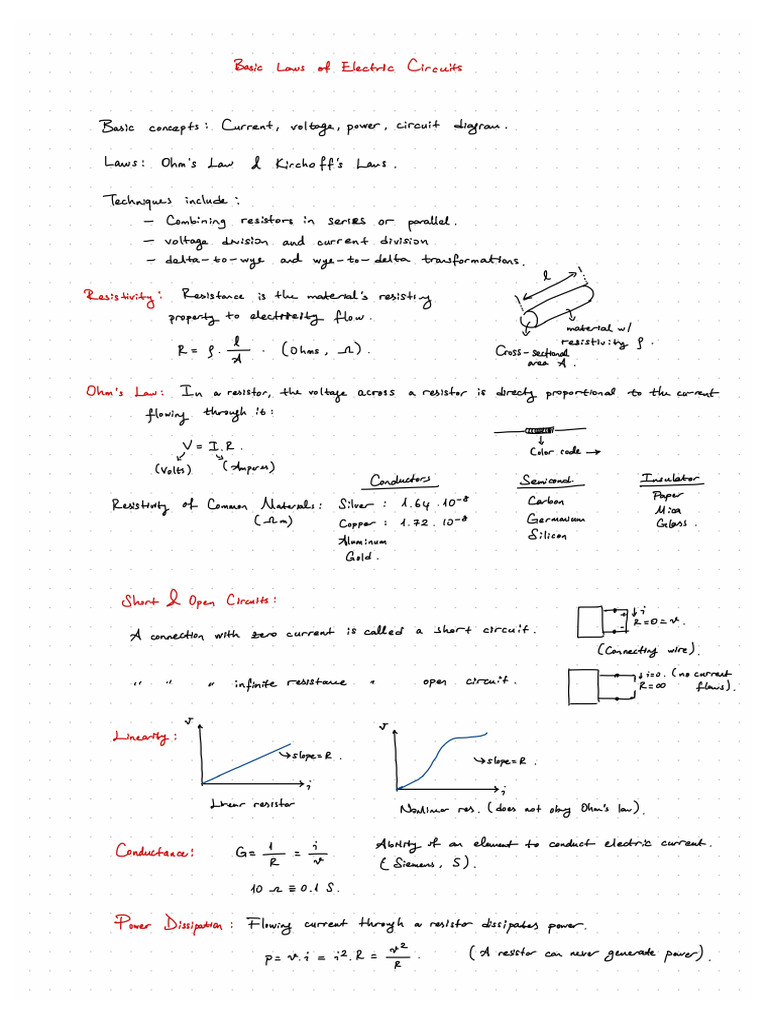 Basic Laws of Electric Circuits
Basic concepts: Current, voltage, power, circuit diagram.
Laws: Ohm's Law & Kirchoff's Laws.
Techniques include:
– Combining resistors in series or parallel.
– voltage division and current division
– delta-to-wye and wye-to-delta transformations.
Resistivity: Resistance is the material's resisting
property to electricity flow.
R = ρ · l/A · (Ohms, Ω).
l
material w/
resistivity ρ.
Cross-sectional
area A.
Ohm's Law: In a resistor, the voltage across a resistor is directly proportional to the current
flowing through it:
V = I.R.
(Volts) (Amperes)
Color code →
Resistivity of Common Materials:
(Ωm)
Conductors
Silver : 1.64 . 10⁻⁸
Copper : 1.72 . 10⁻⁸
Aluminum
Gold.
Semicond.
Carbon
Germanium
Silicon
Insulator
Paper
Mica
Glass.
Short & Open Circuits:
A connection with zero current is called a short circuit.
+ ↓ i
- R=0=v.
(Connecting wire).
" " " infinite resistance " open circuit.
↓i=0. (no current
R=∞ flows).
Linearity:
v
slope=R.
i
Linear resistor
v
slope=R.
i
Nonlinear res. (does not obey Ohm's law).
Conductance: G = 1/R = i/v
Ability of an element to conduct electric current.
(Siemens, S).
10 Ω ≡ 0.1 S.
Power Dissipation: Flowing current through a resistor dissipates power.
p = v.i = i².R = v²/R. (A resistor can never generate power).